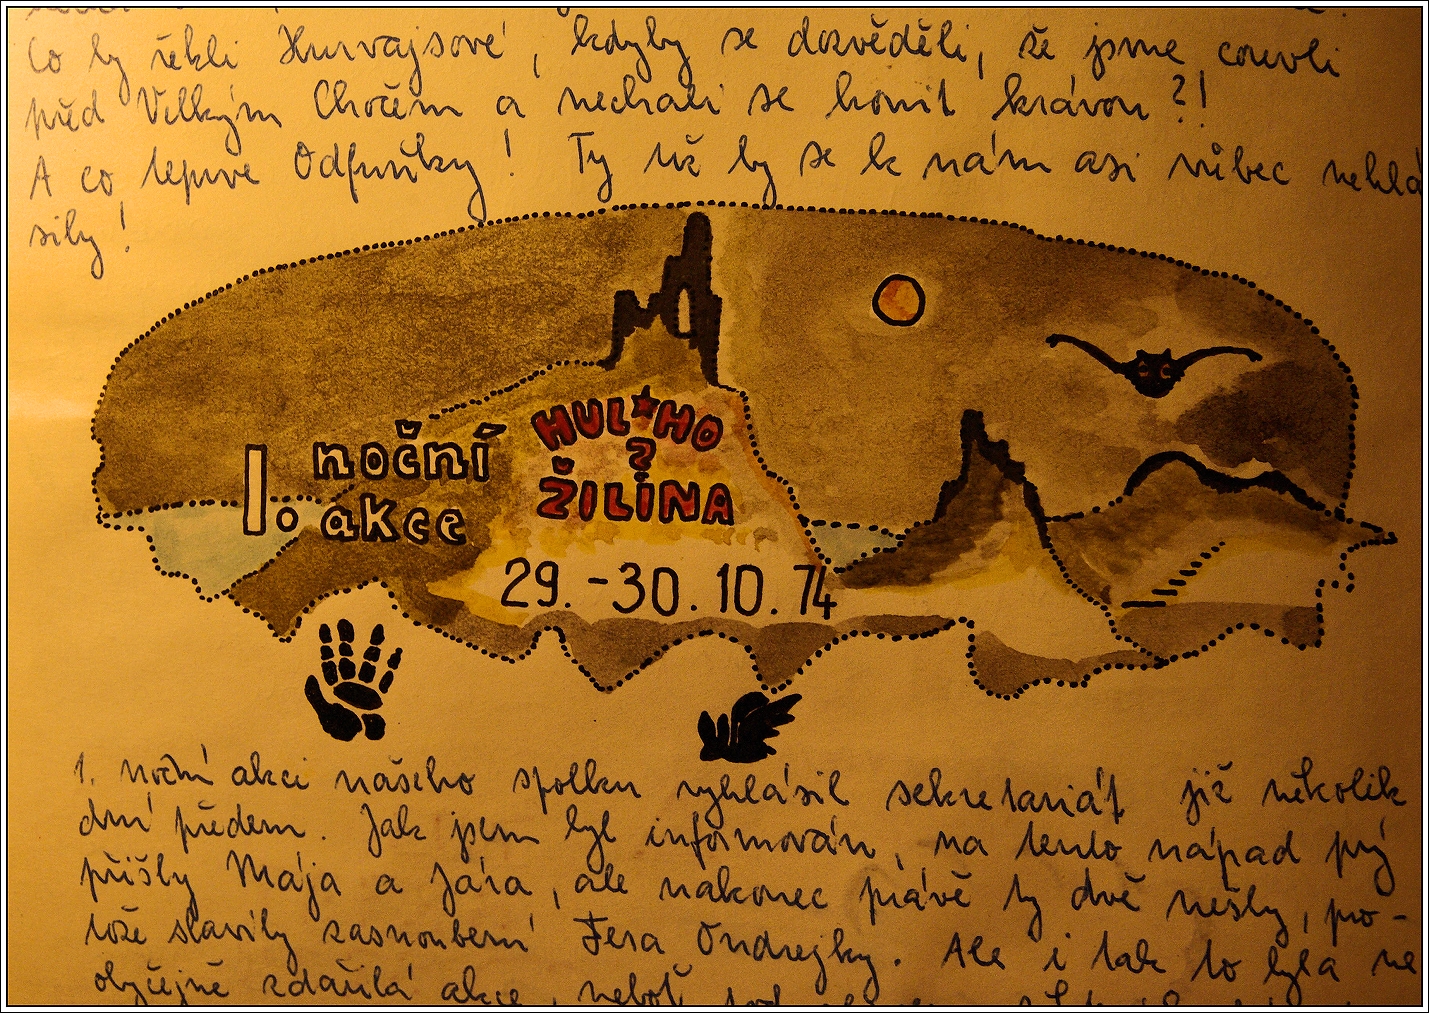 Co by řekli Hurvajsové, kdyby se dozvěděli, že jsme couvli
před Velkým Chočem a nechali se honit krávou?!
A co teprve Odfuňky! Ty už by se k nám asi vůbec nehlá
sily!
HUL★HO
noční
2
1. akce
ŽILINA
29.-30.10.74
1. noční akci našeho spolku vyhlásil sekretariát již několik
dní předem. Jak jsem byl informován, na tento nápad prý
přišly Mája a Jára, ale nakonec právě ty dvě nešly, pro-
tože slavily zasnoubení Fera Ondrejky. Ale i tak to byla ne
obyčejně zdařilá akce, neboť